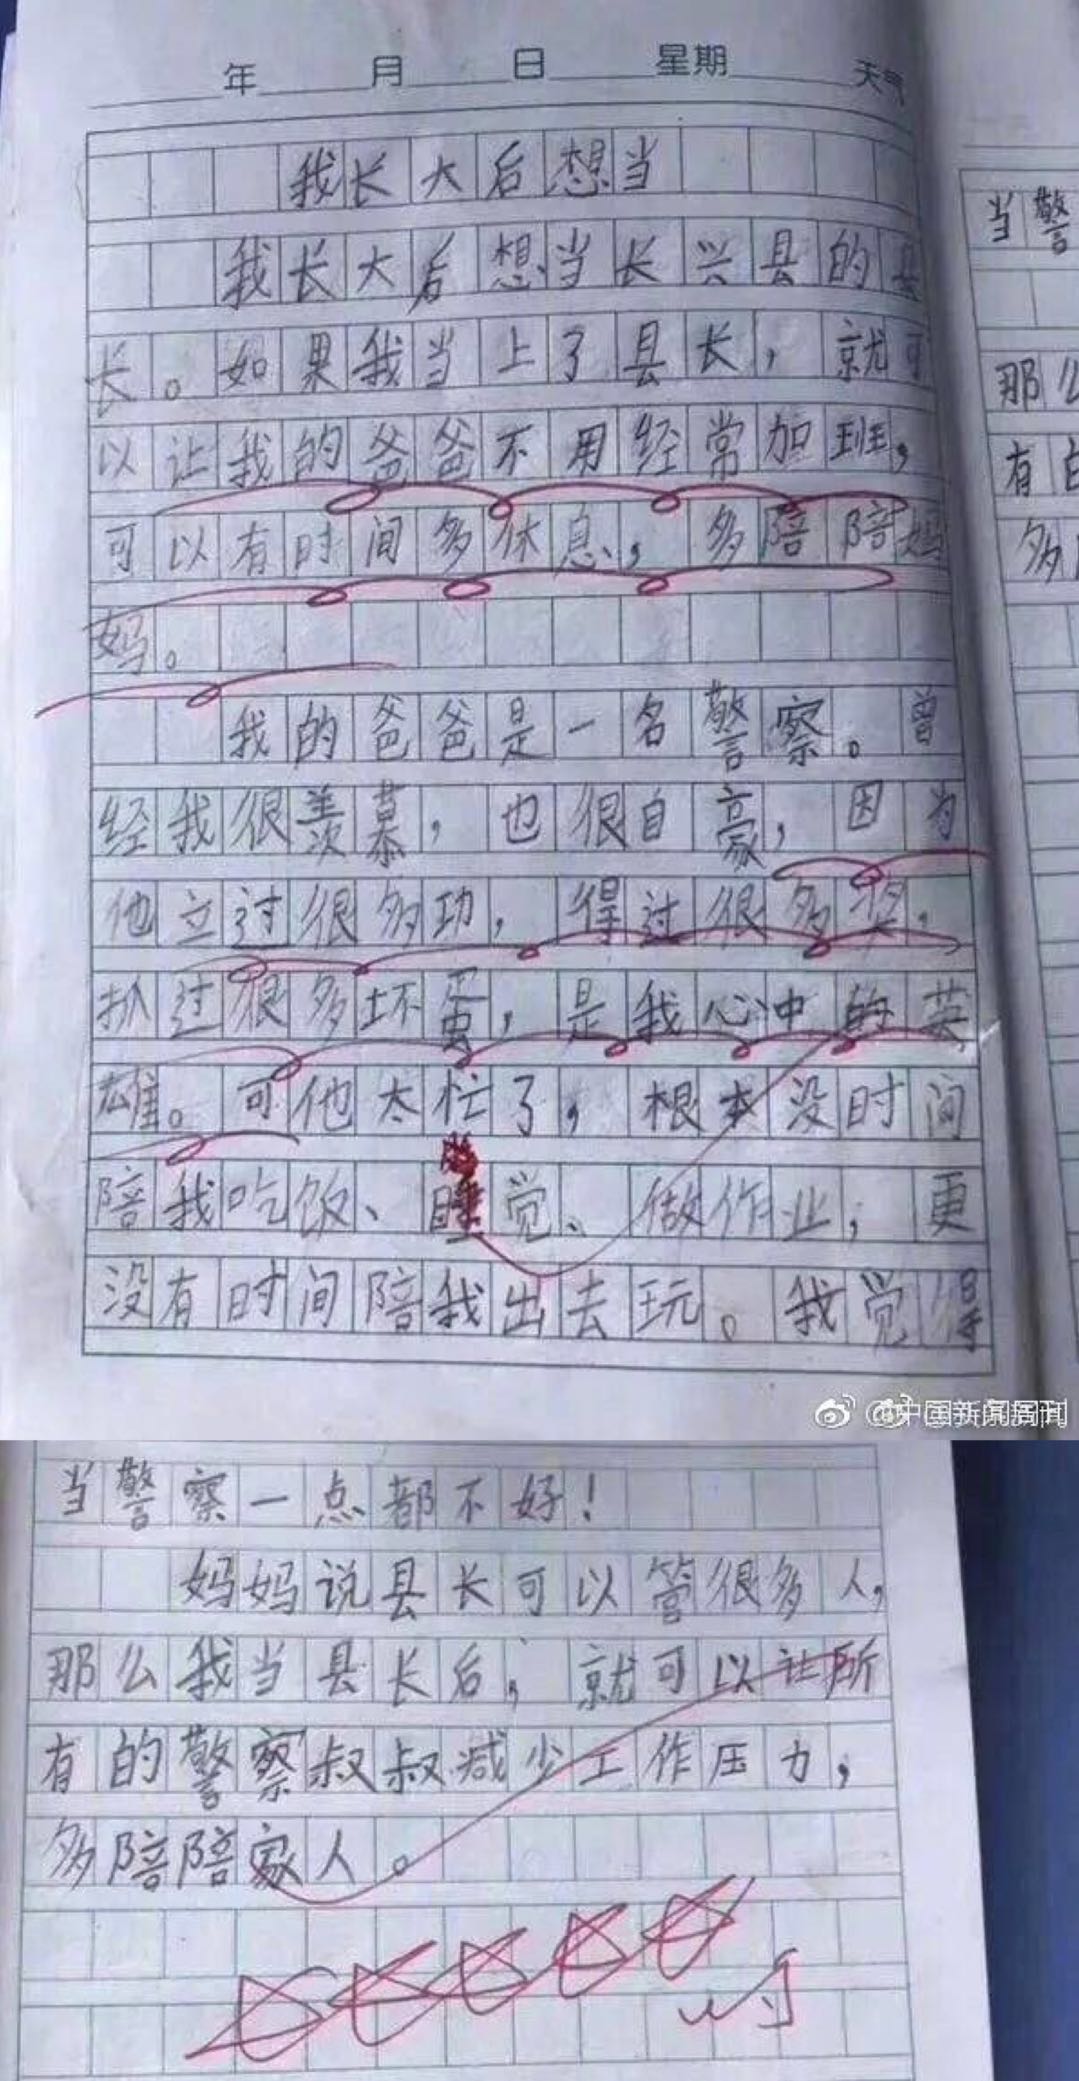 年 月 日 星期 天气
我长大后想当
我长大后想当长兴县的县
长。如果我当上了县长，就可
以让我的爸爸不用经常加班，
可以有时间多休息，多陪陪妈
妈。
我的爸爸是一名警察。曾
经我很羡慕，也很自豪，因为
他立过很多功，得过很多奖，
抓过很多坏蛋，是我心中的英
雄。可他太忙了，根本没时间
陪我吃饭、睡觉、做作业，更
没有时间陪我出去玩。我觉得
当警
那么
有的
多陪
@中国新闻周刊
当警察一点都不好！
妈妈说县长可以管很多人，
那么我当县长后，就可以让所
有的警察叔叔减少工作压力，
多陪陪家人。